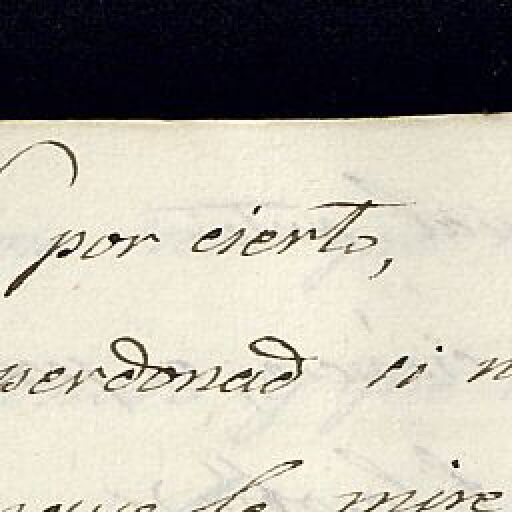 por cierto,
perdonad si
le mire